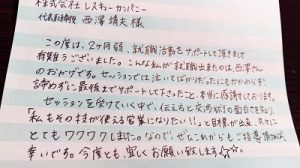 株式会社 レスキューカンパニー
代表取締役 西澤靖夫様
この度は、2ヶ月弱、就職活動をサポートして頂きまして
有難うございました。こんな私が就職出来たのは、西澤さん
のおかげです。セッションでは泣いてばかりだったにもかかわらず、
諦めずに最後までサポートして下さったこと、本当に感謝しております。
セッションを受けていく中で、伝え方と交渉術の面白さを知り、
「私もその技が使える営業になりたい!!」と目標が出来、久々に
とてもワクワクしました。なので、ぜひこれからもご指導頂ければ
幸いです。今後とも、宜しくお願い致します☆